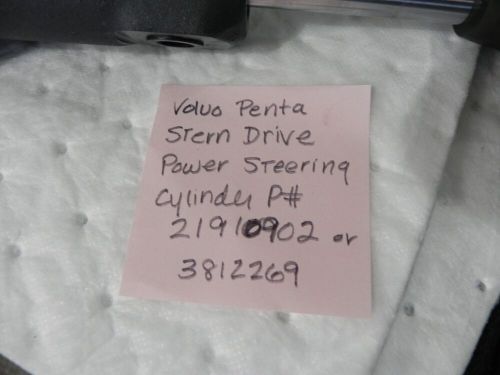 Volvo Penta
Stern Drive
Power Steering
Cylinder P#
21910902 or
3812269